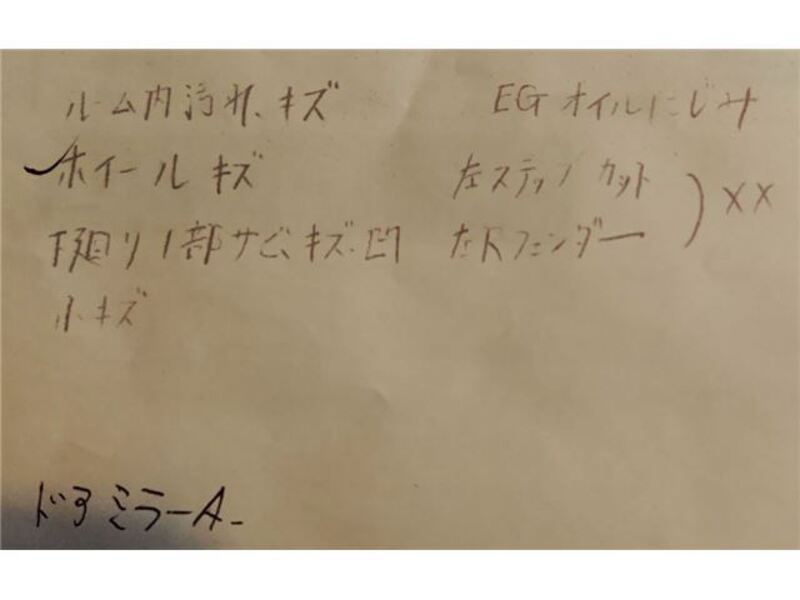 ルーム内汚れ、キズ
ホイール キズ
下廻り1部サビ、キズ.凹
小キズ
EG オイルにじみ
左ステップ カット
左Rフェンダー
) XX
ドアミラーA-